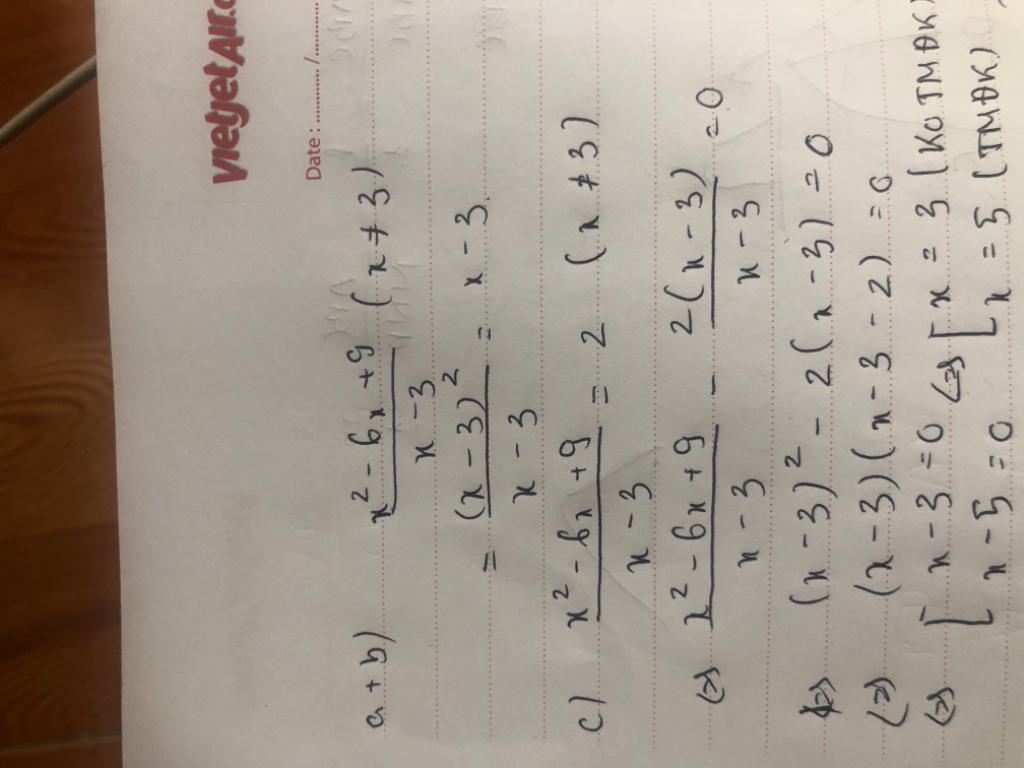 vietjetAir.c
Date : ........../..........
a + b) x² - 6x + 9 / x - 3 (x ≠ 3)
= (x - 3)² / x - 3 = x - 3
c) x² - 6x + 9 / x - 3 = 2 (x ≠ 3)
(=> x² - 6x + 9 / x - 3 - 2(x - 3) / x - 3 = 0
(=> (x - 3)² - 2(x - 3) = 0
(=> (x - 3)(x - 3 - 2) = 0
(=> [ x - 3 = 0 (=> [ x = 3 (KOTMĐK)
[ x - 5 = 0 [ x = 5 (TMĐK)